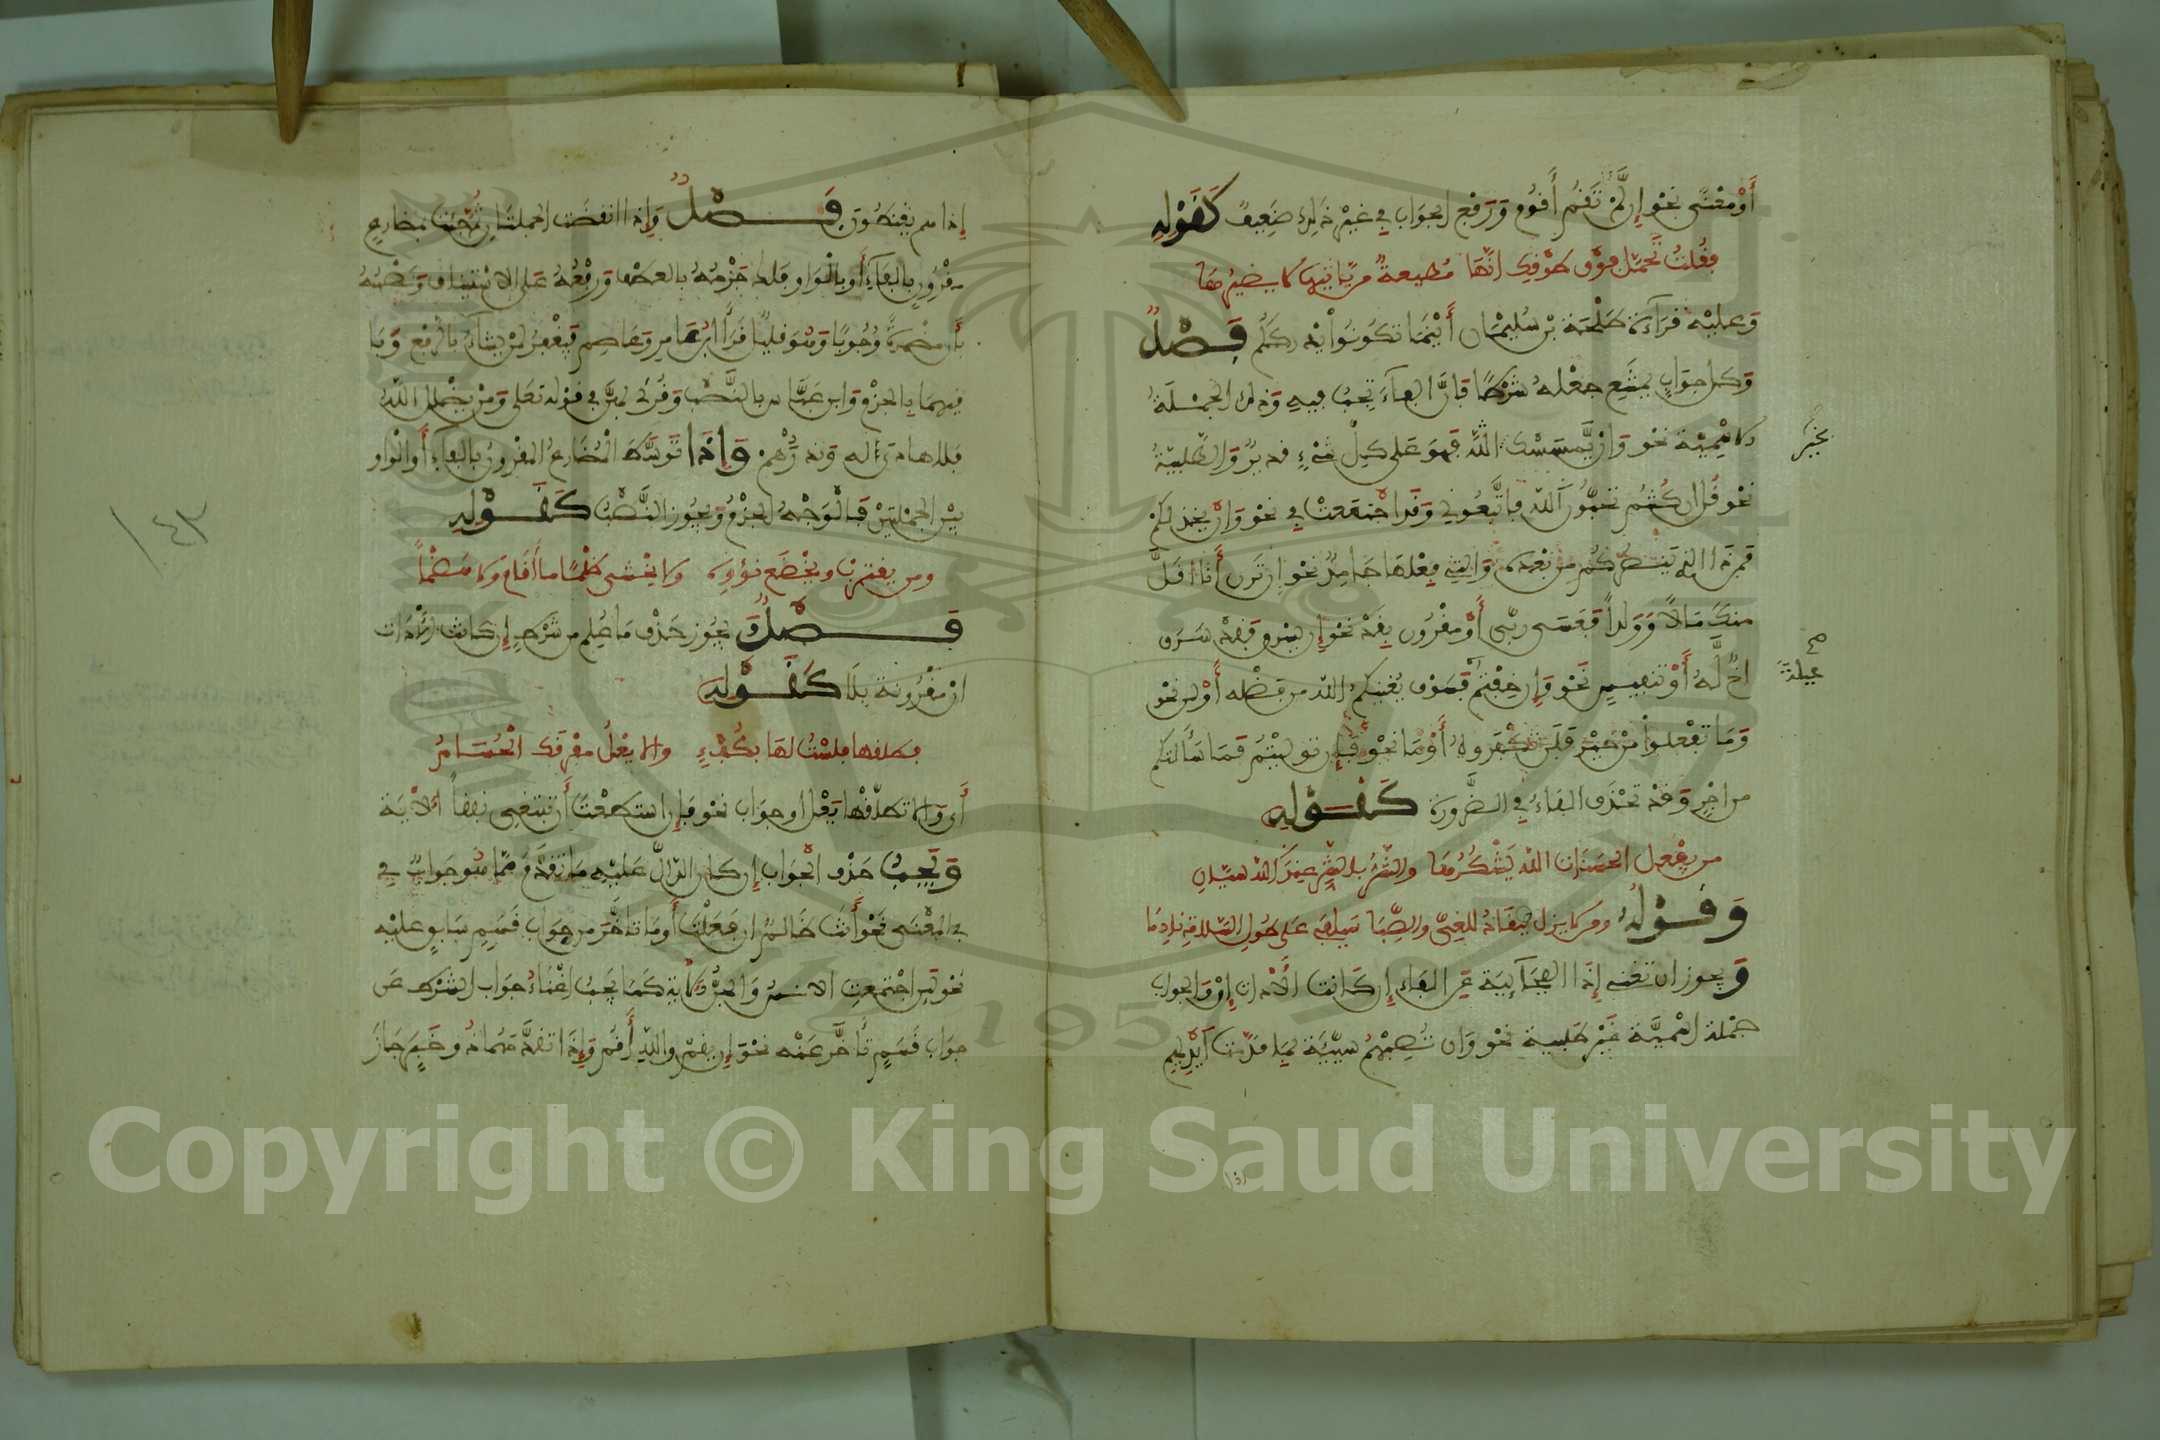 أو معنى نحو إن لم تقم أقوم ورفع الجواب في غير ذلك ضعيف كقوله
فقلت تحمل فوق طوقك إنها مطبعة من يأتها لا يضيرها
وعليه قراءة طلحة بن سليمان أينما تكونوا يدرككم فصل
وكل جواب يمتنع جعله شرطا فإن الفاء تجب فيه وذلك الجملة
الاسمية نحو وإن يمسسك الله فهو على كل شيء قدير والطلبية
بخير
نحو قل إن كنتم تحبون الله فاتبعوني وقد اجتمعتا في نحو وإن يخذلكم
فمن ذا الذي ينصركم من بعده والتي فعلها جامد نحو إن ترن أنا أقل
منك مالا وولدا فعسى ربي أو مقرون بقد نحو إن يسرق فقد سرق
أخ له أو تنفيس نحو وإن خفتم عيلة فسوف يغنيكم الله من فضله أو لن نحو
وما تفعلوا من خير فلن تكفروه أو ما نحو فإن توليتم فما سألتكم
من اجر وقد تحذف الفاء في الضرورة كقوله
من يفعل الحسنات الله يشكرها والشر بالشر عند الله سيان
وقوله ومن لا يزل ينقاد للغي والصبا سيلفى على طول السلامة نادما
ويجوز ان تغني إذا الفجائية عن الفاء إن كانت الأداة إن والجواب
جملة اسمية غير طلبية نحو وان تصبهم سيئة بما قدمت أيديهم
إذا هم يقنطون فصل وإذا انقضت الجملتان ثم جئت بمضارع
مقرون بالفاء أو بالواو فلك جزمه بالعطف ورفعه على الاستئناف ونصبه
بأن مضمرة وجوبا وهو قليل قرأ ابن عامر وعاصم فيغفر لمن يشاء بالرفع وبا
فيهما بالجزم وابن عباس بالنصب وقرئ بهن في قوله تعلى ومن يضلل الله
فلا هادي له ونذرهم وإذا توسط المضارع المقرون بالفاء أو الواو
بين الجملتين فالوجه الجزم ويجوز النصب كقوله
ومن يقترب منا ويخضع نؤوه ولا يخشى ظلما ما أقام ولا هضما
فصل يجوز حذف ما علم من شرط إن كانت الأداة
ان مقرونة بلا كقوله
فطلقها فلست لها بكفء والا يعل مفرقك الحسام
أي والا تطلقها يعل او جواب نحو فإن استطعت أن تبتغي نفقا الآية
ويجب حذف الجواب إن كان الدال عليه ما تقدم مما هو جواب في
في المعنى نحو أنت ظالم ان فعلت أو ما تأخر من جواب قسم سابق عليه
نحو لئن اجتمعت الانس والجن الآية كما يجب إغناء جواب الشرط عن
جواب قسم تأخر عنه نحو إن يقم والله أقم وإذا تقدمهما ذو خبر جاز
١٤٣
Copyright © King Saud University
1957